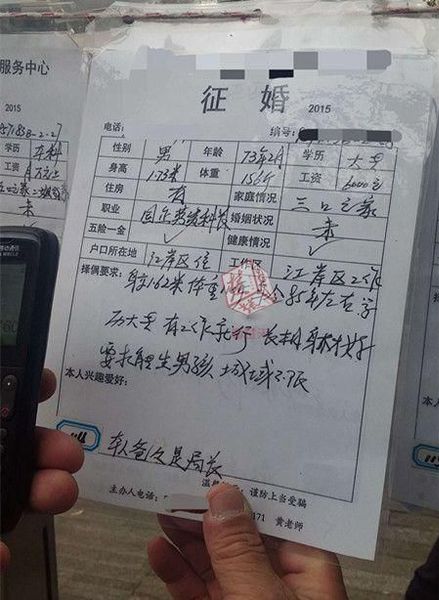 服务中心
2015
征 婚 2015
电话: 编号:
性别 男 年龄 73年2月 学历 大专
身高 1.73米 体重 156斤 工资 6000元
住房 有 家庭情况 三口之家
职业 婚姻状况 未
五险一金 ✓ 健康情况 ✓
户口所在地 江岸区住 工作区 江岸区工作
择偶要求: 身高1.62米 体重 85年左右 学
历大专 有工作就行 长相身材好
要求能生男孩 地域不限
本人兴趣爱好:
本人爸爸是局长
温 谨防上当受骗
主办人电话: 171 黄老师